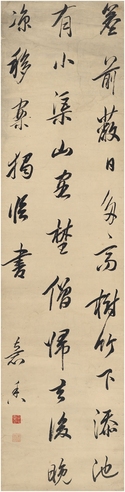 簷前蔽日多高樹竹下添池
有小渠山客埜僧歸去後晚
涼移案獨臨書